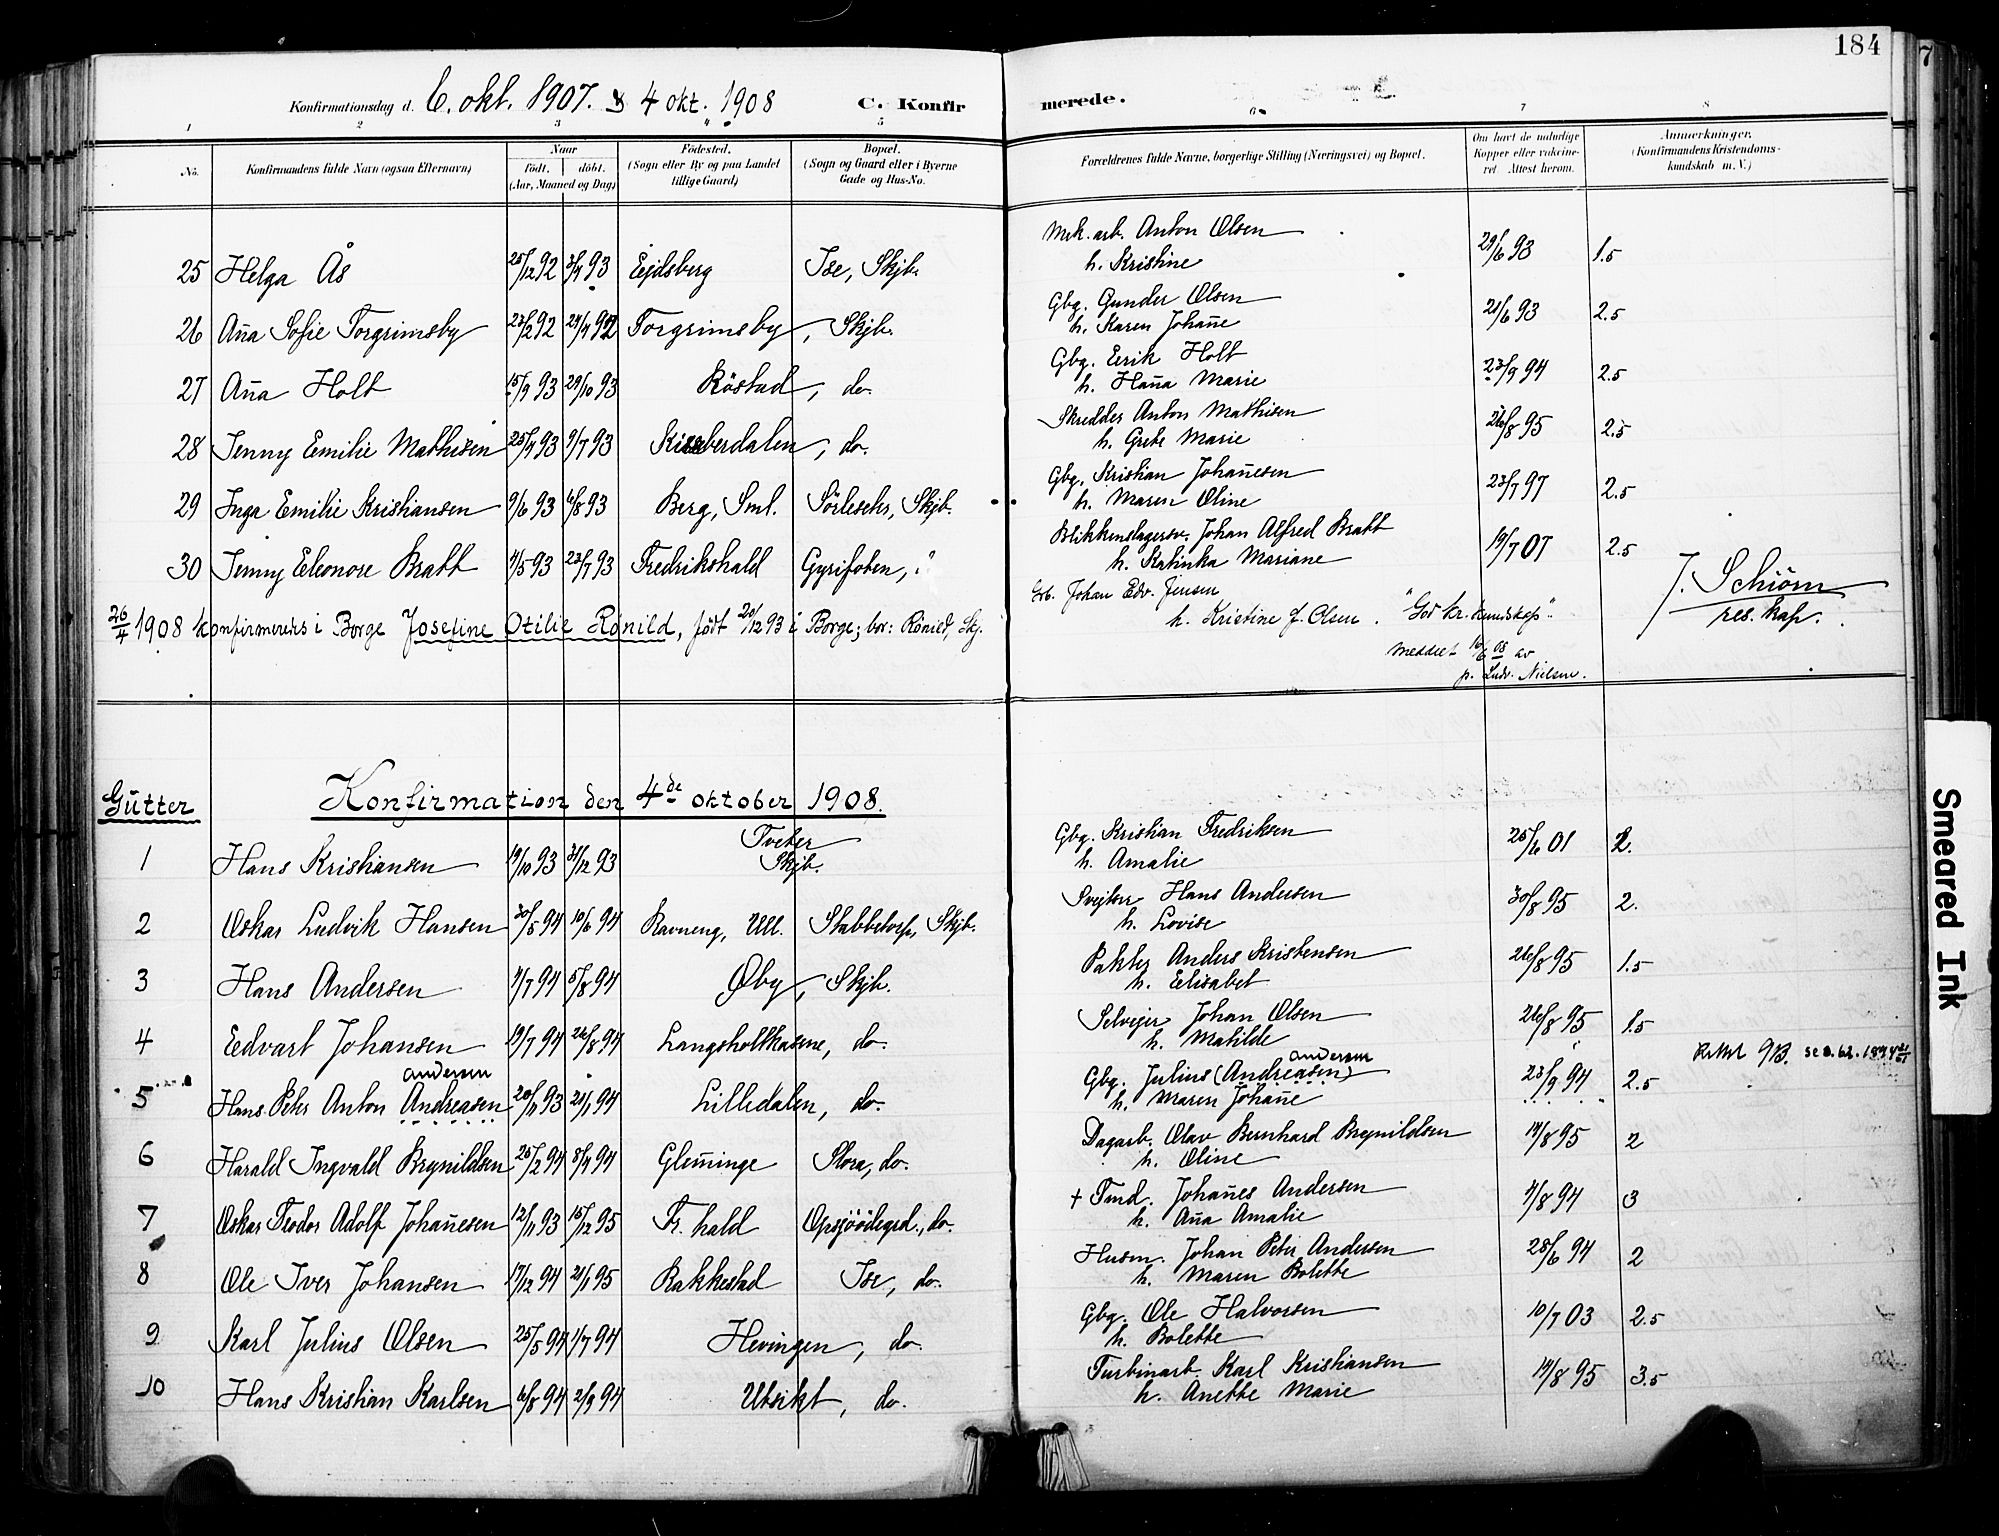 184
7
Konfirmationsdag d. 6. okt. 1907. & 4 okt. 1908 C. Konfirmerede.
1 2 3 5 6 7 8
No. Konfirmandens fulde Navn (ogsaa Efternavn) Naar født. døbt. (Aar, Maaned og Dag) Fødested. (Sogn eller By og paa Landet tillige Gaard) Bopæl. (Sogn og Gaard eller i Byerne Gade og Hus-No. Forældrenes fulde Navne, borgerlige Stilling (Næringsvei) og Bopæl. Om havt de naturlige Kopper eller vakcineret. Attest herom. Anmærkninger. (Konfirmandens Kristendomskundskab m. V.)
25 Helga Ås 25/12 92 3/4 93 Eidsberg Ise, Skjb. Mek. arb. Anton Olsen 29/6 93 1.5
h. Kristine
26 Anna Sofie Torgrimsby 23/2 92 24/4 92 Torgrimsby, Skjb. Gbg. Gunder Olsen 21/6 93 2.5
h. Karen Johanne
27 Anna Holt 15/9 93 29/10 93 Röstad, do. Gbg. Eerik Holt 23/9 94 2.5
h. Hanna Marie
28 Jenny Emilie Mathisen 25/4 93 9/7 93 Kisaberdalen, do. Skredder Anton Mathisen 26/8 95 2.5
h. Grete Marie
29 Inga Emilie Kristiansen 9/6 93 6/8 93 Berg, Sml. Skjb. Gbg. Kristian Johannesen 23/7 97 2.5
h. Maren Oline
30 Jenny Eleonore Bratt 4/5 93 23/7 93 Fredrikshald " Blikkenslagersv. Johan Alfred Bratt 19/7 07 2.5
h. Katinka Mariane
26/4 1908 konfirmeredes i Borge Josefine Otilie Rönild, født 20/12 93 i Borge; bor: Rönild, Skj. Johan Edv. Jensen
h. Kristine J. Olsen. "God kr. kundskap".
Meddelt 16/6 08 av
p. Ludv. Nielsen.
J. Schiörn
res. kap.
Gutter Konfirmation den 4de oktober 1908.
1 Hans Kristiansen 19/10 93 31/12 93 Tveter Skjb. Gbg. Kristian Fredriksen 25/6 01 2.
h. Amalie
2 Oskar Ludvik Hansen 30/5 94 10/6 94 Ravneng, Ull. Stabbetorp, Skjb. Svejtser Hans Andersen 30/8 95 2.
h. Lovise
3 Hans Andersen 4/7 94 5/8 94 Øby, Skjb. Pakter Anders Kristensen 26/8 95 1.5
h. Eelisabet
4 Eedvart Johansen 19/7 94 26/8 94 Langsholtkasene, do. Selvejer Johan Olsen 26/8 95 1.5
h. Matilde
5 Hans Peter Anton Andreasen andersen 20/11 93 21/1 94 Lilledalen, do. Gbg. Julius (Andreasen) andersen 23/9 94 2.5
h. Maren Johanne
6 Harald Ingvald Brynildsen 25/2 94 8/4 94 Glemminge Slora, do. Dagarb. Olav Bernhard Brynildsen 14/8 95 2
h. Oline
7 Oskar Teodor Adolf Johannesen 12/11 93 15/12 95 Fr. hald Opsjöödegrd., do. + Tmd. Johannes Andersen 4/8 94 3
h. Anna Amalie
8 Ole Iver Johansen 17/12 94 21/1 95 Rakkestad Ise, do. Husm. Johan Peter Andersen 28/6 94 2
h. Maren Bolette
9 Karl Julius Olsen 25/5 94 1/7 94 Hevingen, do. Gbg. Ole Halvorsen 10/7 03 2.5
h. Bolette
10 Hans Kristian Karlsen 6/8 94 2/9 94 Utsikt, do. Turbinarb. Karl Kristiansen 14/8 95 3.5
h. Anette Marie
Smeared Ink